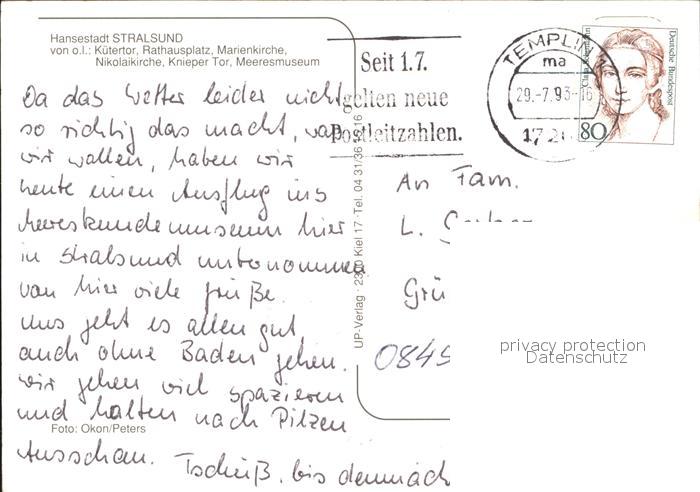 Hansestadt STRALSUND
von o.l.: Kütertor, Rathausplatz, Marienkirche,
Nikolaikirche, Knieper Tor, Meeresmuseum
Seit 1.7.
gelten neue
Postleitzahlen.
TEMPLIN
ma
29.-7.93-16
172
80
Deutsche Bundespost
Da das Wetter leider nicht
so richtig das macht, was
wir wollen, haben wir
heute einen Ausflug ins
Meereskundemuseum hier
in Stralsund unternommen
von hier viele Grüße.
Uns geht es allen gut
auch ohne Baden gehen.
Wir gehen viel spazieren
und halten nach Pilzen
Ausschau. Tschüß, bis demnäch
Foto: Okon/Peters
UP-Verlag · 2300 Kiel 17 · Tel. 04 31/36
An Fam.
L.
Grü
0849
privacy protection
Datenschutz